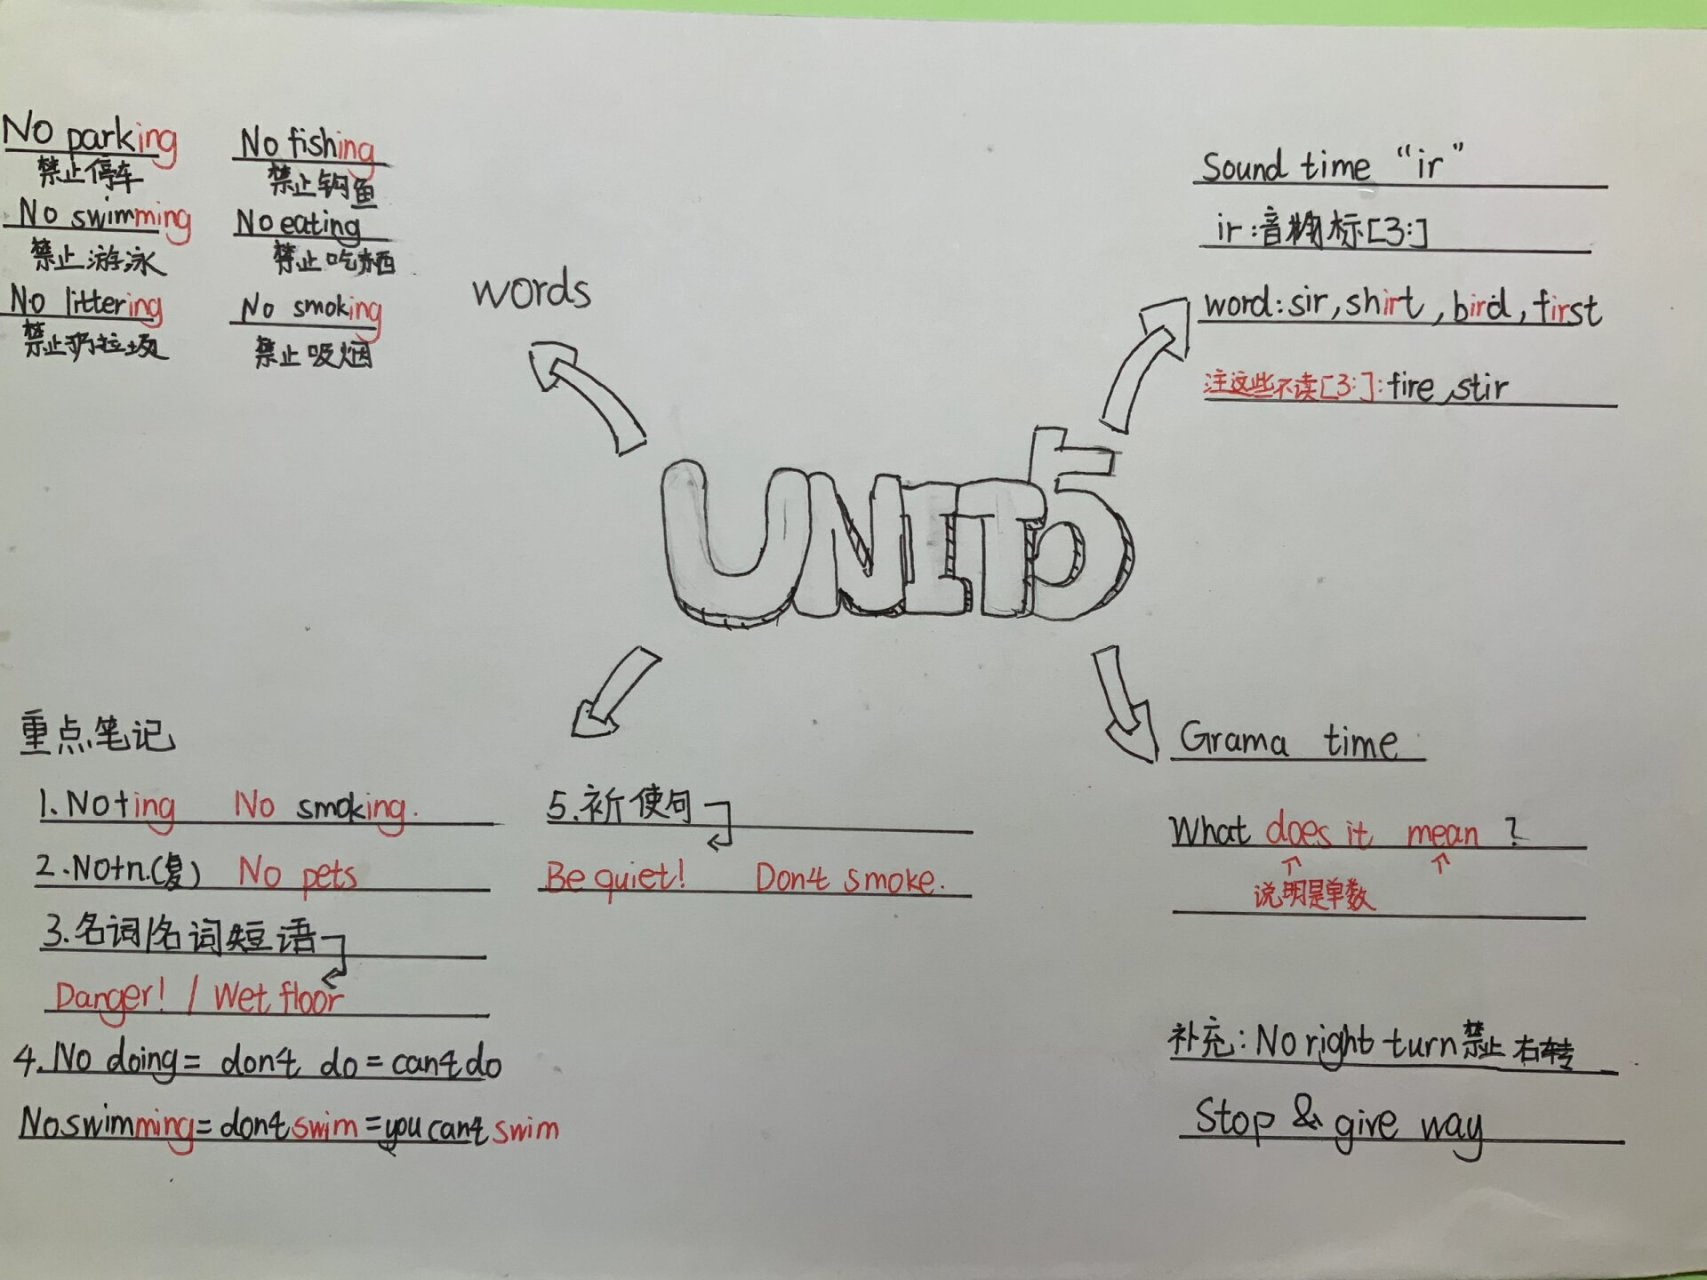 No parking
禁止停车
No swimming
禁止游泳
No littering
禁止扔垃圾
No fishing
禁止钓鱼
No eating
禁止吃东西
No smoking
禁止吸烟
words
Sound time “ir”
ir:音标[3:]
word:sir,shirt,bird,first
注这些不读[3:]:fire,stir
UNIT5
重点笔记
1.No+ing No smoking.
2.No+n.(复) No pets
3.名词/名词短语
Danger! / Wet floor
4.No doing= don't do = can't do
No swimming= don't swim =you can't swim
5.祈使句
Be quiet! Don't smoke.
Grama time
What does it mean ?
说明是单数
补充:No right turn 禁止右转
Stop & give way